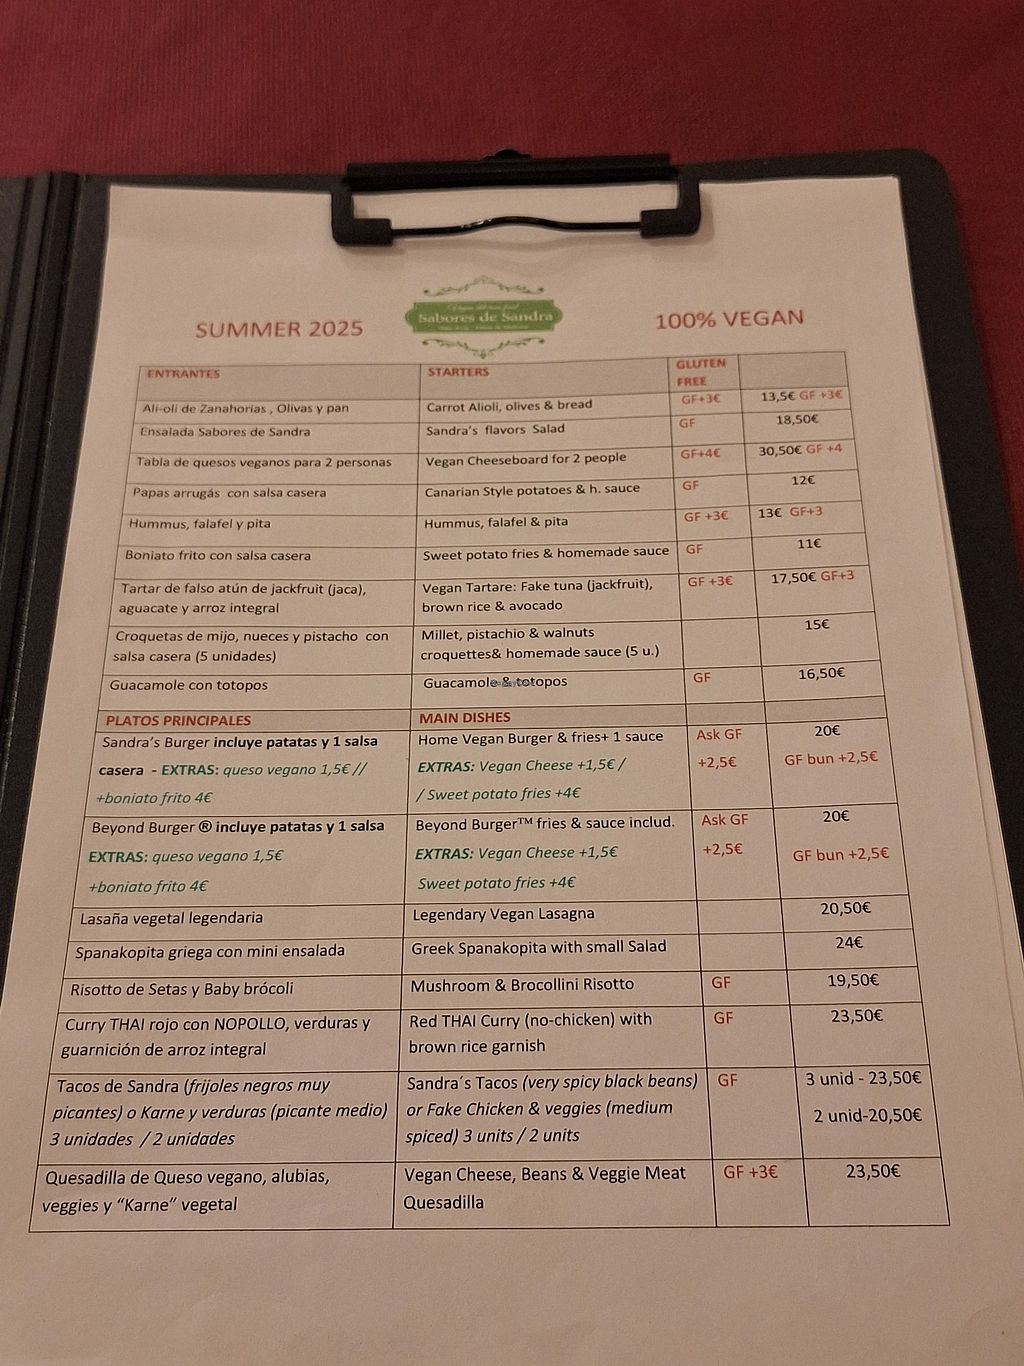 SUMMER 2025
Sabores de Sandra
100% VEGAN
ENTRANTES STARTERS GLUTEN FREE
Ali-oli de Zanahorias , Olivas y pan Carrot Alioli, olives & bread GF+3€ 13,5€ GF +3€
Ensalada Sabores de Sandra Sandra's flavors Salad GF 18,50€
Tabla de quesos veganos para 2 personas Vegan Cheeseboard for 2 people GF+4€ 30,50€ GF +4
Papas arrugás con salsa casera Canarian Style potatoes & h. sauce GF 12€
Hummus, falafel y pita Hummus, falafel & pita GF +3€ 13€ GF+3
Boniato frito con salsa casera Sweet potato fries & homemade sauce GF 11€
Tartar de falso atún de jackfruit (jaca), Vegan Tartare: Fake tuna (jackfruit), GF +3€ 17,50€ GF+3
aguacate y arroz integral brown rice & avocado
Croquetas de mijo, nueces y pistacho con Millet, pistachio & walnuts 15€
salsa casera (5 unidades) croquettes& homemade sauce (5 u.)
Guacamole con totopos Guacamole & totopos GF 16,50€
PLATOS PRINCIPALES MAIN DISHES
Sandra´s Burger incluye patatas y 1 salsa Home Vegan Burger & fries+ 1 sauce Ask GF 20€
casera - EXTRAS: queso vegano 1,5€ // EXTRAS: Vegan Cheese +1,5€ / +2,5€ GF bun +2,5€
+boniato frito 4€ / Sweet potato fries +4€
Beyond Burger ® incluye patatas y 1 salsa Beyond Burger™ fries & sauce includ. Ask GF 20€
EXTRAS: queso vegano 1,5€ EXTRAS: Vegan Cheese +1,5€ +2,5€ GF bun +2,5€
+boniato frito 4€ Sweet potato fries +4€
Lasaña vegetal legendaria Legendary Vegan Lasagna 20,50€
Spanakopita griega con mini ensalada Greek Spanakopita with small Salad 24€
Risotto de Setas y Baby brócoli Mushroom & Brocollini Risotto GF 19,50€
Curry THAI rojo con NOPOLLO, verduras y Red THAI Curry (no-chicken) with GF 23,50€
guarnición de arroz integral brown rice garnish
Tacos de Sandra (frijoles negros muy Sandra´s Tacos (very spicy black beans) GF 3 unid - 23,50€
picantes) o Karne y verduras (picante medio) or Fake Chicken & veggies (medium 2 unid-20,50€
3 unidades / 2 unidades spiced) 3 units / 2 units
Quesadilla de Queso vegano, alubias, Vegan Cheese, Beans & Veggie Meat GF +3€ 23,50€
veggies y "Karne" vegetal Quesadilla